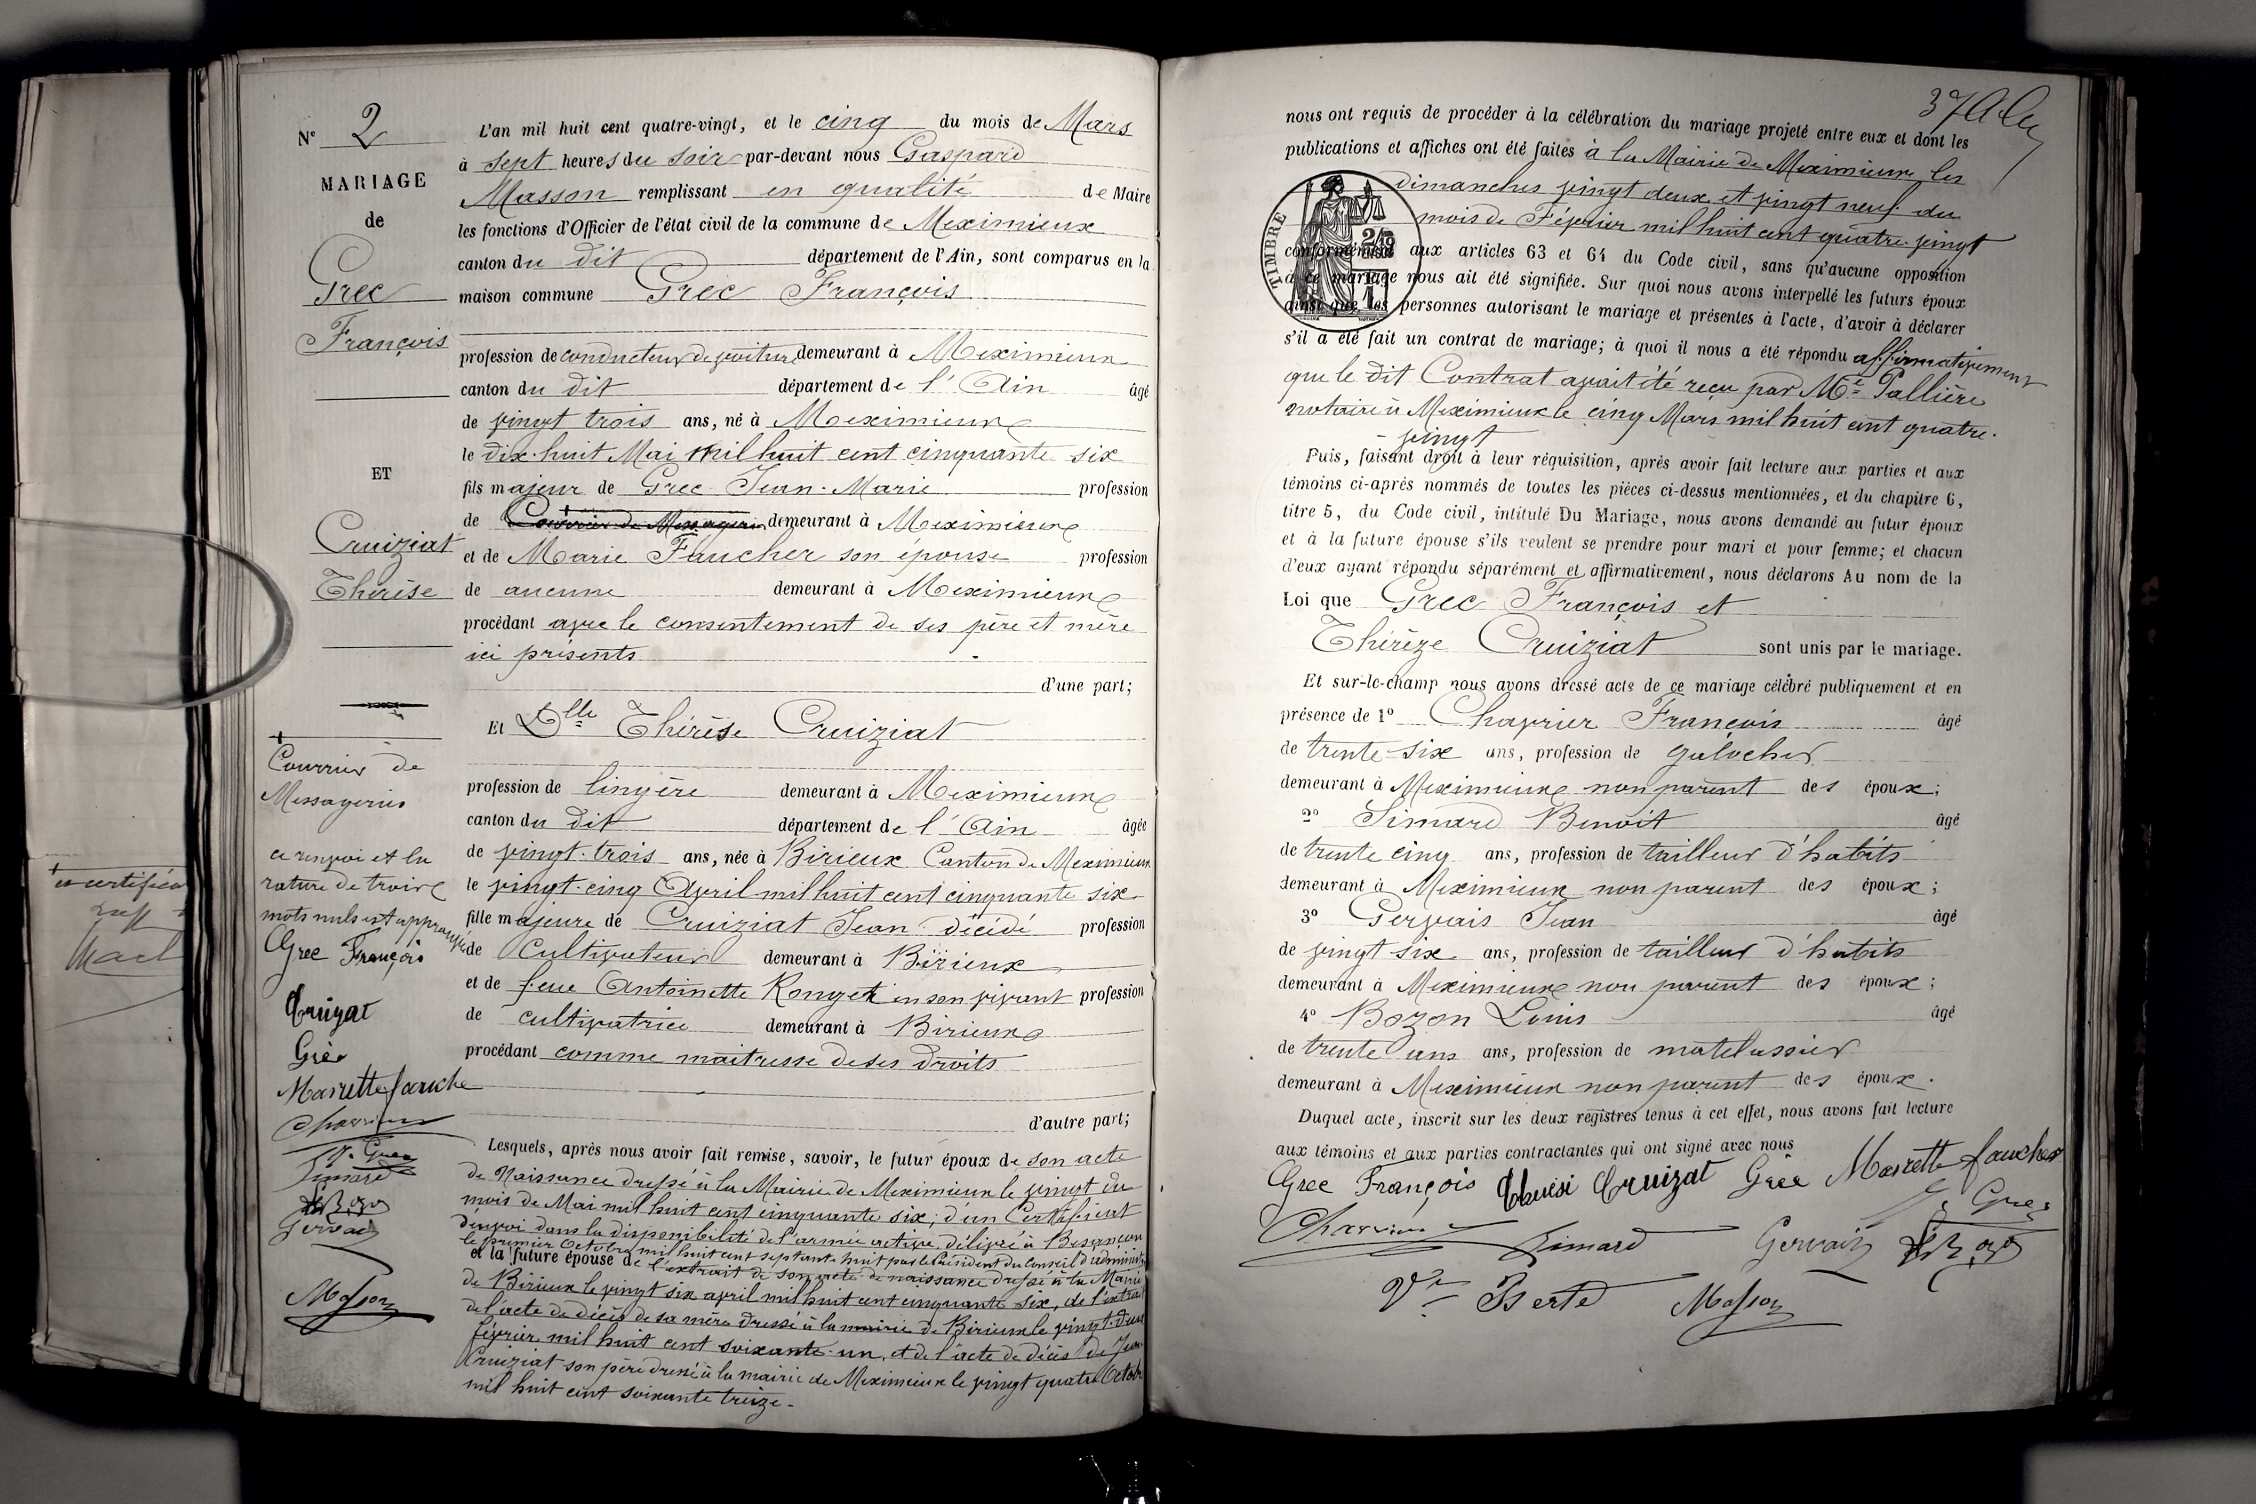 N° 2
MARIAGE
de
Grec
François
ET
Cruiziat
Thérèse
L'an mil huit cent quatre-vingt, et le cinq du mois de Mars
à sept heures du soir par-devant nous Gaspard
Masson remplissant en qualité de Maire
les fonctions d'Officier de l'état civil de la commune de Meximieux
canton du dit département de l'Ain, sont comparus en la
maison commune Grec François
profession de conducteur de voiture demeurant à Meximieux
canton du dit département de l'Ain âgé
de vingt trois ans, né à Meximieux
le dix-huit Mai mil huit cent cinquante six
fils majeur de Grec Jean-Marie profession
de Courrier de Messageries demeurant à Meximieux
et de Marie Faucher son épouse profession
de aucune demeurant à Meximieux
procédant avec le consentement de ses père et mère
ici présents
d'une part;
Et Dlle Thérèse Cruiziat
profession de lingère demeurant à Meximieux
canton du dit département de l'Ain âgée
de vingt-trois ans, née à Birieux Canton de Meximieux
le vingt-cinq Avril mil huit cent cinquante six
fille majeure de Cruiziat Jean décédé profession
de Cultivateur demeurant à Birieux
et de feue Antoinette Ronget en son vivant profession
de cultivatrice demeurant à Birieux
procédant comme maitresse de ses droits
d'autre part;
Lesquels, après nous avoir fait remise, savoir, le futur époux de son acte
de Naissance dressé à la Mairie de Meximieux le vingt du
mois de Mai mil huit cent cinquante six; d'un Certificat
d'envoi dans la disponibilité de l'armée active, délivré à Besançon
le premier Octobre mil huit cent septante huit par le Président du Conseil d'administ
et la future épouse de l'extrait de son acte de naissance dressé à la Mairie
de Birieux le vingt six avril mil huit cent cinquante six, de l'extrait
de l'acte de décès de sa mère dressé à la mairie de Birieux le vingt-deux
février mil huit cent soixante-un, et de l'acte de décès de Jean
Cruiziat son père dressé à la mairie de Meximieux le vingt quatre Octobre
mil huit cent soixante treize.
Courrier de
Messageries
ce renvoi et la
rature de trois
mots nuls est approuvé
Grec François
Cruizat
Grèc
Mariette fauche
Charrier
J. Grec
Simard
Bozon
Gervais
Masson
certifié
37
nous ont requis de procéder à la célébration du mariage projeté entre eux et dont les
publications et affiches ont été faites à la Mairie de Meximieux les
dimanches vingt deux et vingt neuf du
mois de Février mil huit cent quatre vingt
TIMBRE
conformément aux articles 63 et 64 du Code civil, sans qu'aucune opposition
à ce mariage nous ait été signifiée. Sur quoi nous avons interpellé les futurs époux
ainsi que les personnes autorisant le mariage et présentes à l'acte, d'avoir à déclarer
s'il a été fait un contrat de mariage; à quoi il nous a été répondu affirmativement
que le dit Contrat avait été reçu par Me Pallière
notaire à Meximieux le cinq Mars mil huit cent quatre-
vingt
Puis, faisant droit à leur réquisition, après avoir fait lecture aux parties et aux
témoins ci-après nommés de toutes les pièces ci-dessus mentionnées, et du chapitre 6,
titre 5, du Code civil, intitulé Du Mariage, nous avons demandé au futur époux
et à la future épouse s'ils veulent se prendre pour mari et pour femme; et chacun
d'eux ayant répondu séparément et affirmativement, nous déclarons Au nom de la
Loi que Grec François et
Thérèze Cruiziat sont unis par le mariage.
Et sur-le-champ nous avons dressé acte de ce mariage célébré publiquement et en
présence de 1° Charrier François âgé
de trente-six ans, profession de galocher
demeurant à Meximieux non parent des époux;
2° Simard Benoit âgé
de trente cinq ans, profession de tailleur d'habits
demeurant à Meximieux non parent des époux;
3° Gervais Jean âgé
de vingt-six ans, profession de tailleur d'habits
demeurant à Meximieux non parent des époux;
4° Bozon Louis âgé
de trente ans ans, profession de matelassier
demeurant à Meximieux non parent des époux.
Duquel acte, inscrit sur les deux registres tenus à cet effet, nous avons fait lecture
aux témoins et aux parties contractantes qui ont signé avec nous
Grec François Thérèsi Cruizat Grèc Mariette faucher
J. Grec
Charrier Simard Gervais Bozon
Vve Berte Masson